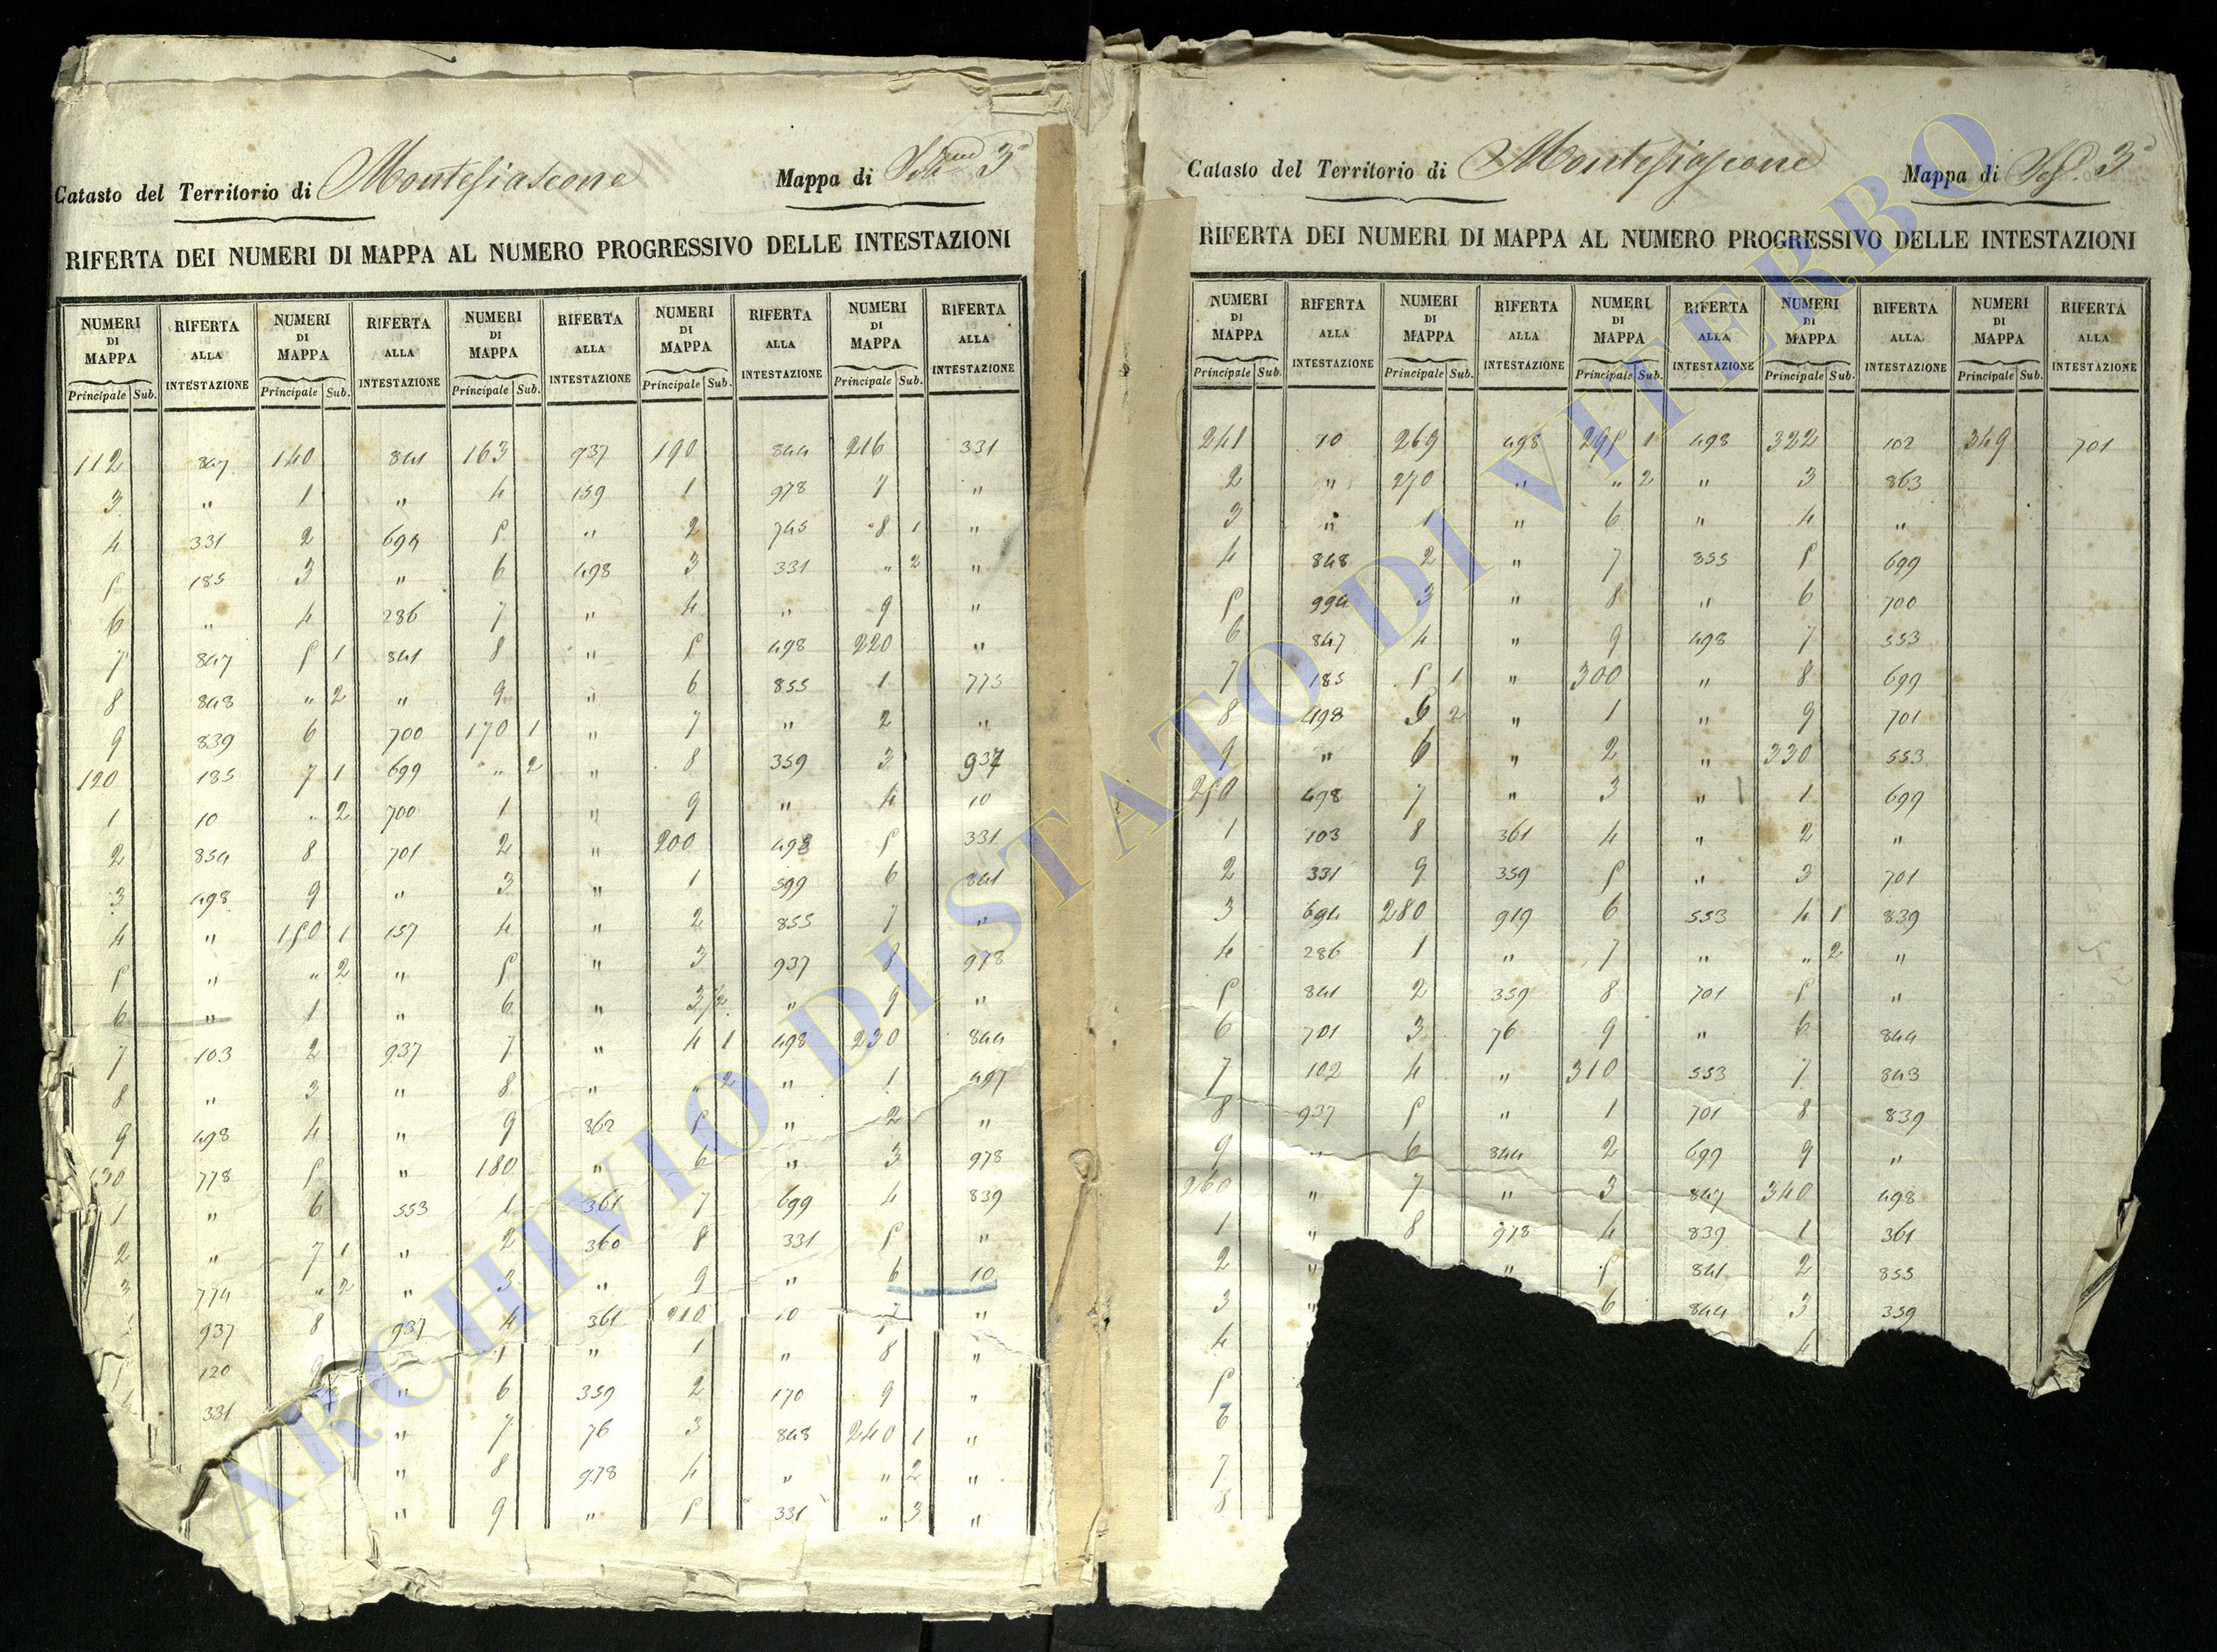 Catasto del Territorio di Montefiascone Mappa di Sez. 3ª
RIFERTA DEI NUMERI DI MAPPA AL NUMERO PROGRESSIVO DELLE INTESTAZIONI
NUMERI DI MAPPA RIFERTA ALLA INTESTAZIONE NUMERI DI MAPPA RIFERTA ALLA INTESTAZIONE NUMERI DI MAPPA RIFERTA ALLA INTESTAZIONE NUMERI DI MAPPA RIFERTA ALLA INTESTAZIONE NUMERI DI MAPPA RIFERTA ALLA INTESTAZIONE
Principale Sub. Principale Sub. Principale Sub. Principale Sub. Principale Sub.
112 847 140 841 163 937 190 844 216 331
3 " 1 " 4 159 1 978 7 "
4 331 2 694 5 " 2 745 8 1 "
5 185 3 " 6 498 3 331 " 2 "
6 " 4 286 7 " 4 " 9 "
7 847 5 1 841 8 " 5 498 220 "
8 848 " 2 " 9 " 6 855 1 775
9 839 6 700 170 1 " 7 " 2 "
120 185 7 1 699 " 2 " 8 359 3 937
1 10 " 2 700 1 " 9 " 4 10
2 854 8 701 2 " 200 498 5 331
3 498 9 " 3 " 1 599 6 841
4 " 150 1 157 4 " 2 855 7 "
5 " " 2 " 5 " 3 937 8 978
6 " 1 " 6 " 3/2 " 9 "
7 103 2 937 7 " 4 1 498 230 844
8 " 3 " 8 " " 2 " 1 497
9 498 4 " 9 862 5 " 2 "
130 778 5 " 180 " 6 " 3 978
1 " 6 553 1 361 7 699 4 839
2 " 7 1 " 2 360 8 331 5 "
3 774 " 2 " 3 " 9 " 6 10
937 8 937 4 361 210 10 7 "
120 5 " 1 " 8 "
331 " 6 359 2 170 9 "
" 7 76 3 848 240 1 "
" 8 978 4 " " 2 "
" 9 " 5 331 " 3 "
Catasto del Territorio di Montefiascone Mappa di Sez. 3ª
RIFERTA DEI NUMERI DI MAPPA AL NUMERO PROGRESSIVO DELLE INTESTAZIONI
NUMERI DI MAPPA RIFERTA ALLA INTESTAZIONE NUMERI DI MAPPA RIFERTA ALLA INTESTAZIONE NUMERI DI MAPPA RIFERTA ALLA INTESTAZIONE NUMERI DI MAPPA RIFERTA ALLA INTESTAZIONE NUMERI DI MAPPA RIFERTA ALLA INTESTAZIONE
Principale Sub. Principale Sub. Principale Sub. Principale Sub. Principale Sub.
241 10 269 498 295 1 498 322 102 349 701
2 " 270 " " 2 " 3 863
3 " 1 " 6 " 4 "
4 848 2 " 7 855 5 699
5 994 3 " 8 " 6 700
6 847 4 " 9 498 7 553
7 185 5 1 " 300 " 8 699
8 498 6 2 " 1 " 9 701
9 " 6 " 2 " 330 553
250 498 7 " 3 " 1 699
1 103 8 361 4 " 2 "
2 331 9 359 5 " 3 701
3 694 280 919 6 553 4 1 839
4 286 1 " 7 " " 2 "
5 841 2 359 8 701 5 "
6 701 3 76 9 " 6 844
7 102 4 " 310 553 7 843
8 937 5 " 1 701 8 839
9 " 6 844 2 699 9 "
260 " 7 " 3 847 340 498
1 " 8 978 4 839 1 361
2 " " 5 841 2 855
3 " 6 844 3 359
4 4
5
6
7
8
ARCHIVIO DI STATO DI VITERBO